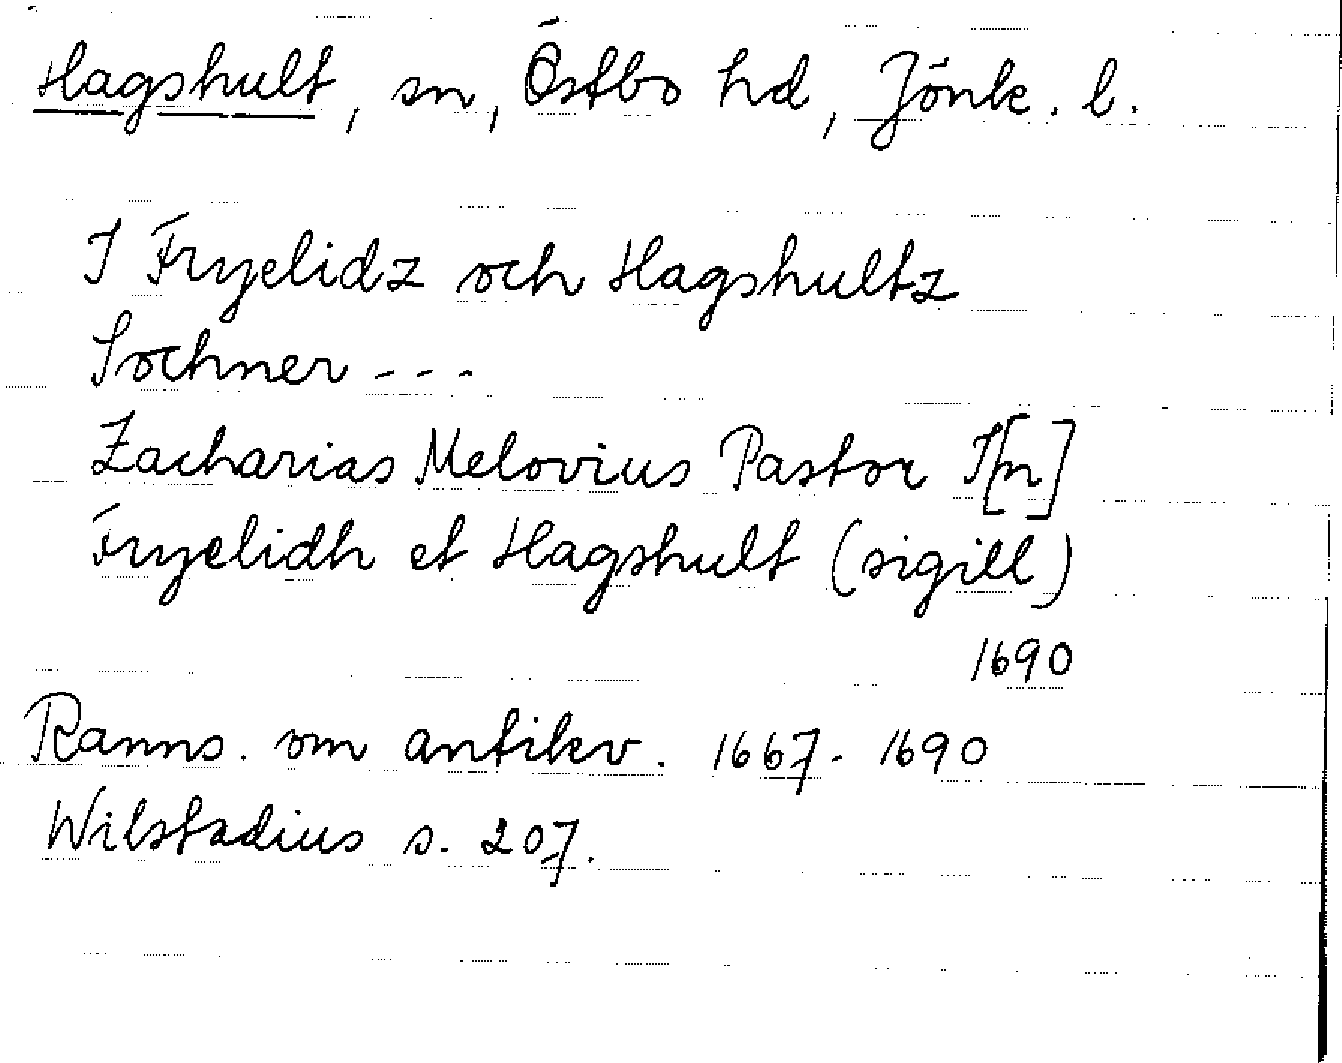 Hagshult, sn, Östbo hd, Jönk. l.
I Fryelidz och Hagshultz
Sochner - - -
Zacharias Melovius Pastor I[n]
Fryelidh et Hagshult (sigill)
1690
Ranns. om antikv. 1667- 1690
Wilstadius s. 207.